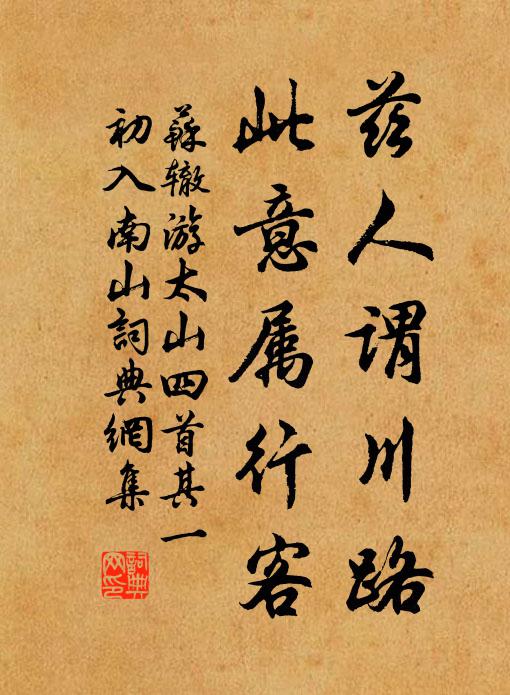 兹人谓川路
此意属行客
蘇辙游太山四首其一
初入南山詞典網集
詞典网印